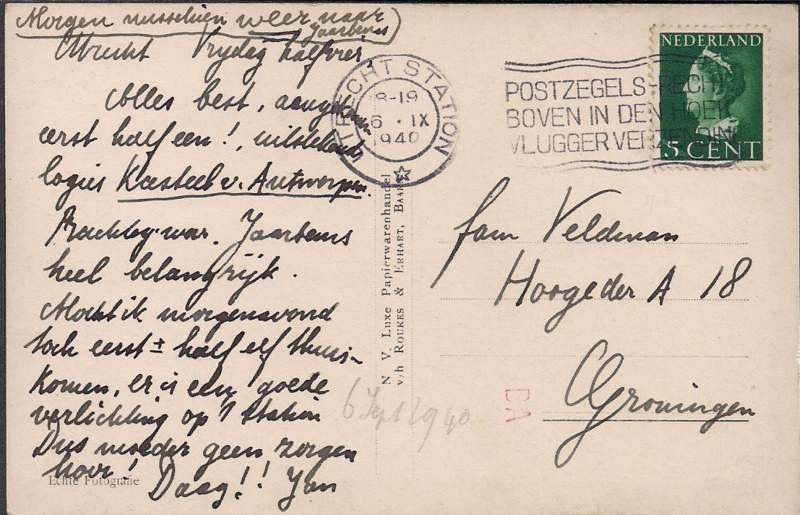 Morgen misschien weer naar
Jaarbeurs
Utrecht Vrijdag half vier
Alles best, aangekomen
eerst half een!, uitstekend
logies Kasteel v. Antwerpen.
Prachtig war. Jaarbeurs
heel belangrijk.
Mocht ik morgenavond
toch eerst ± half elf thuis-
komen, er is een goede
verlichting op 't station
Dus moeder geen zorgen
hoor!
Daag!! Jan
Echte Fotografie
N. V. Luxe Papierwarenhandel
v/h ROUKES & ERHART, BAARN
6 Sept 1940
UTRECHT STATION
8-19
6 · IX
1940
POSTZEGELS RECHTS
BOVEN IN DEN HOEK
VLUGGER VERZENDING
NEDERLAND
5 CENT
fam Veldman
Hoogeder A 18
Groningen
CA